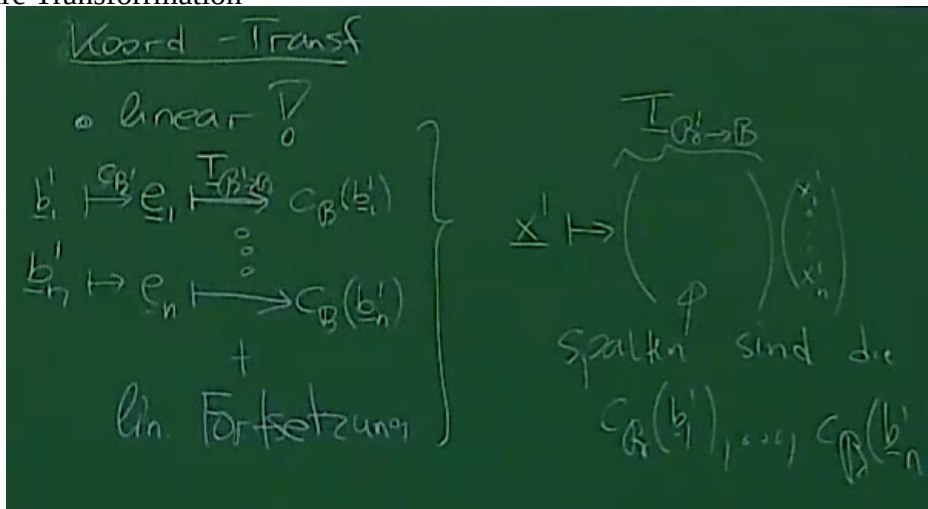 re Transformation
Koord - Transf
• linear !
b'₁ ↦ (c_B') e₁ ↦ (T_B'→B) c_B(b'₁)
b'ₙ ↦ eₙ ↦ c_B(b'ₙ)
+
lin. Fortsetzung
T_B'→B
x' ↦ ( ) (x'₁ ⋮ x'ₙ)
Spalten sind die
c_B(b'₁), ..., c_B(b'ₙ